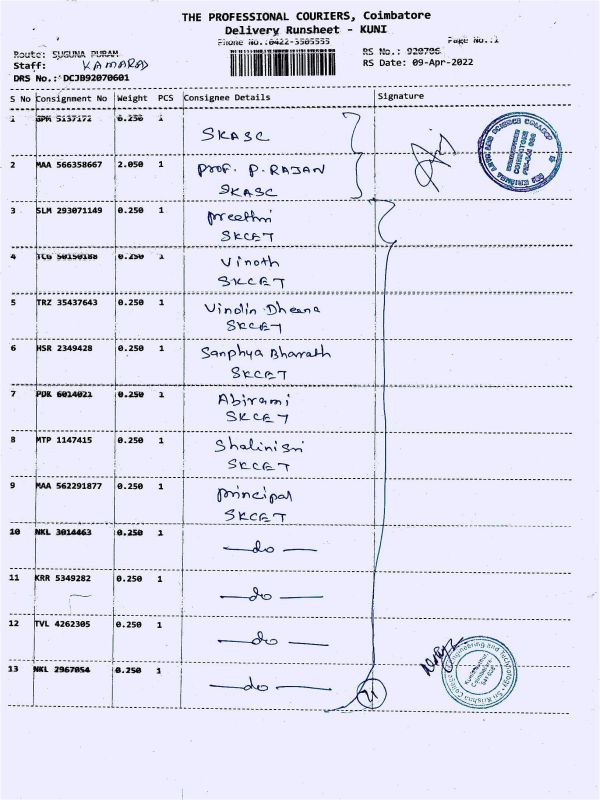 THE PROFESSIONAL COURIERS, Coimbatore
Delivery Runsheet - KUNI
Phone No.:0422-3505555 Page No.:1
Route: SUGUNA PURAM RS No.: 920786
Staff: KAMARAJ RS Date: 09-Apr-2022
DRS No.: DCJB92070601
S No Consignment No Weight PCS Consignee Details Signature
1 GPM 5137172 0.250 1
SKASC
2 MAA 566358667 2.050 1 Prof. P. RAJAN
SKASC
3 SLM 293071149 0.250 1 Preethi
SKCET
4 TCG 50150188 0.250 1 Vinoth
SKCET
5 TRZ 35437643 0.250 1 Vinolin Dheena
SKCET
6 HSR 2349428 0.250 1 Sanphya Bharath
SKCET
7 PDK 6014021 0.250 1 Abirami
SKCET
8 MTP 1147415 0.250 1 Shalinisri
SKCET
9 MAA 562291877 0.250 1 Principal
SKCET
10 NKL 3014463 0.250 1 —do—
11 KRR 5349282 0.250 1 —do—
12 TVL 4262305 0.250 1 —do—
13 NKL 2967054 0.250 1 —do—